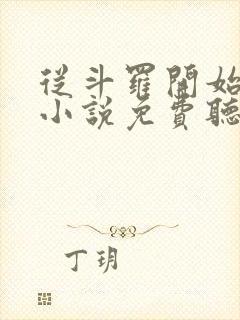 從斗羅開始
小說免費聽
丁玥